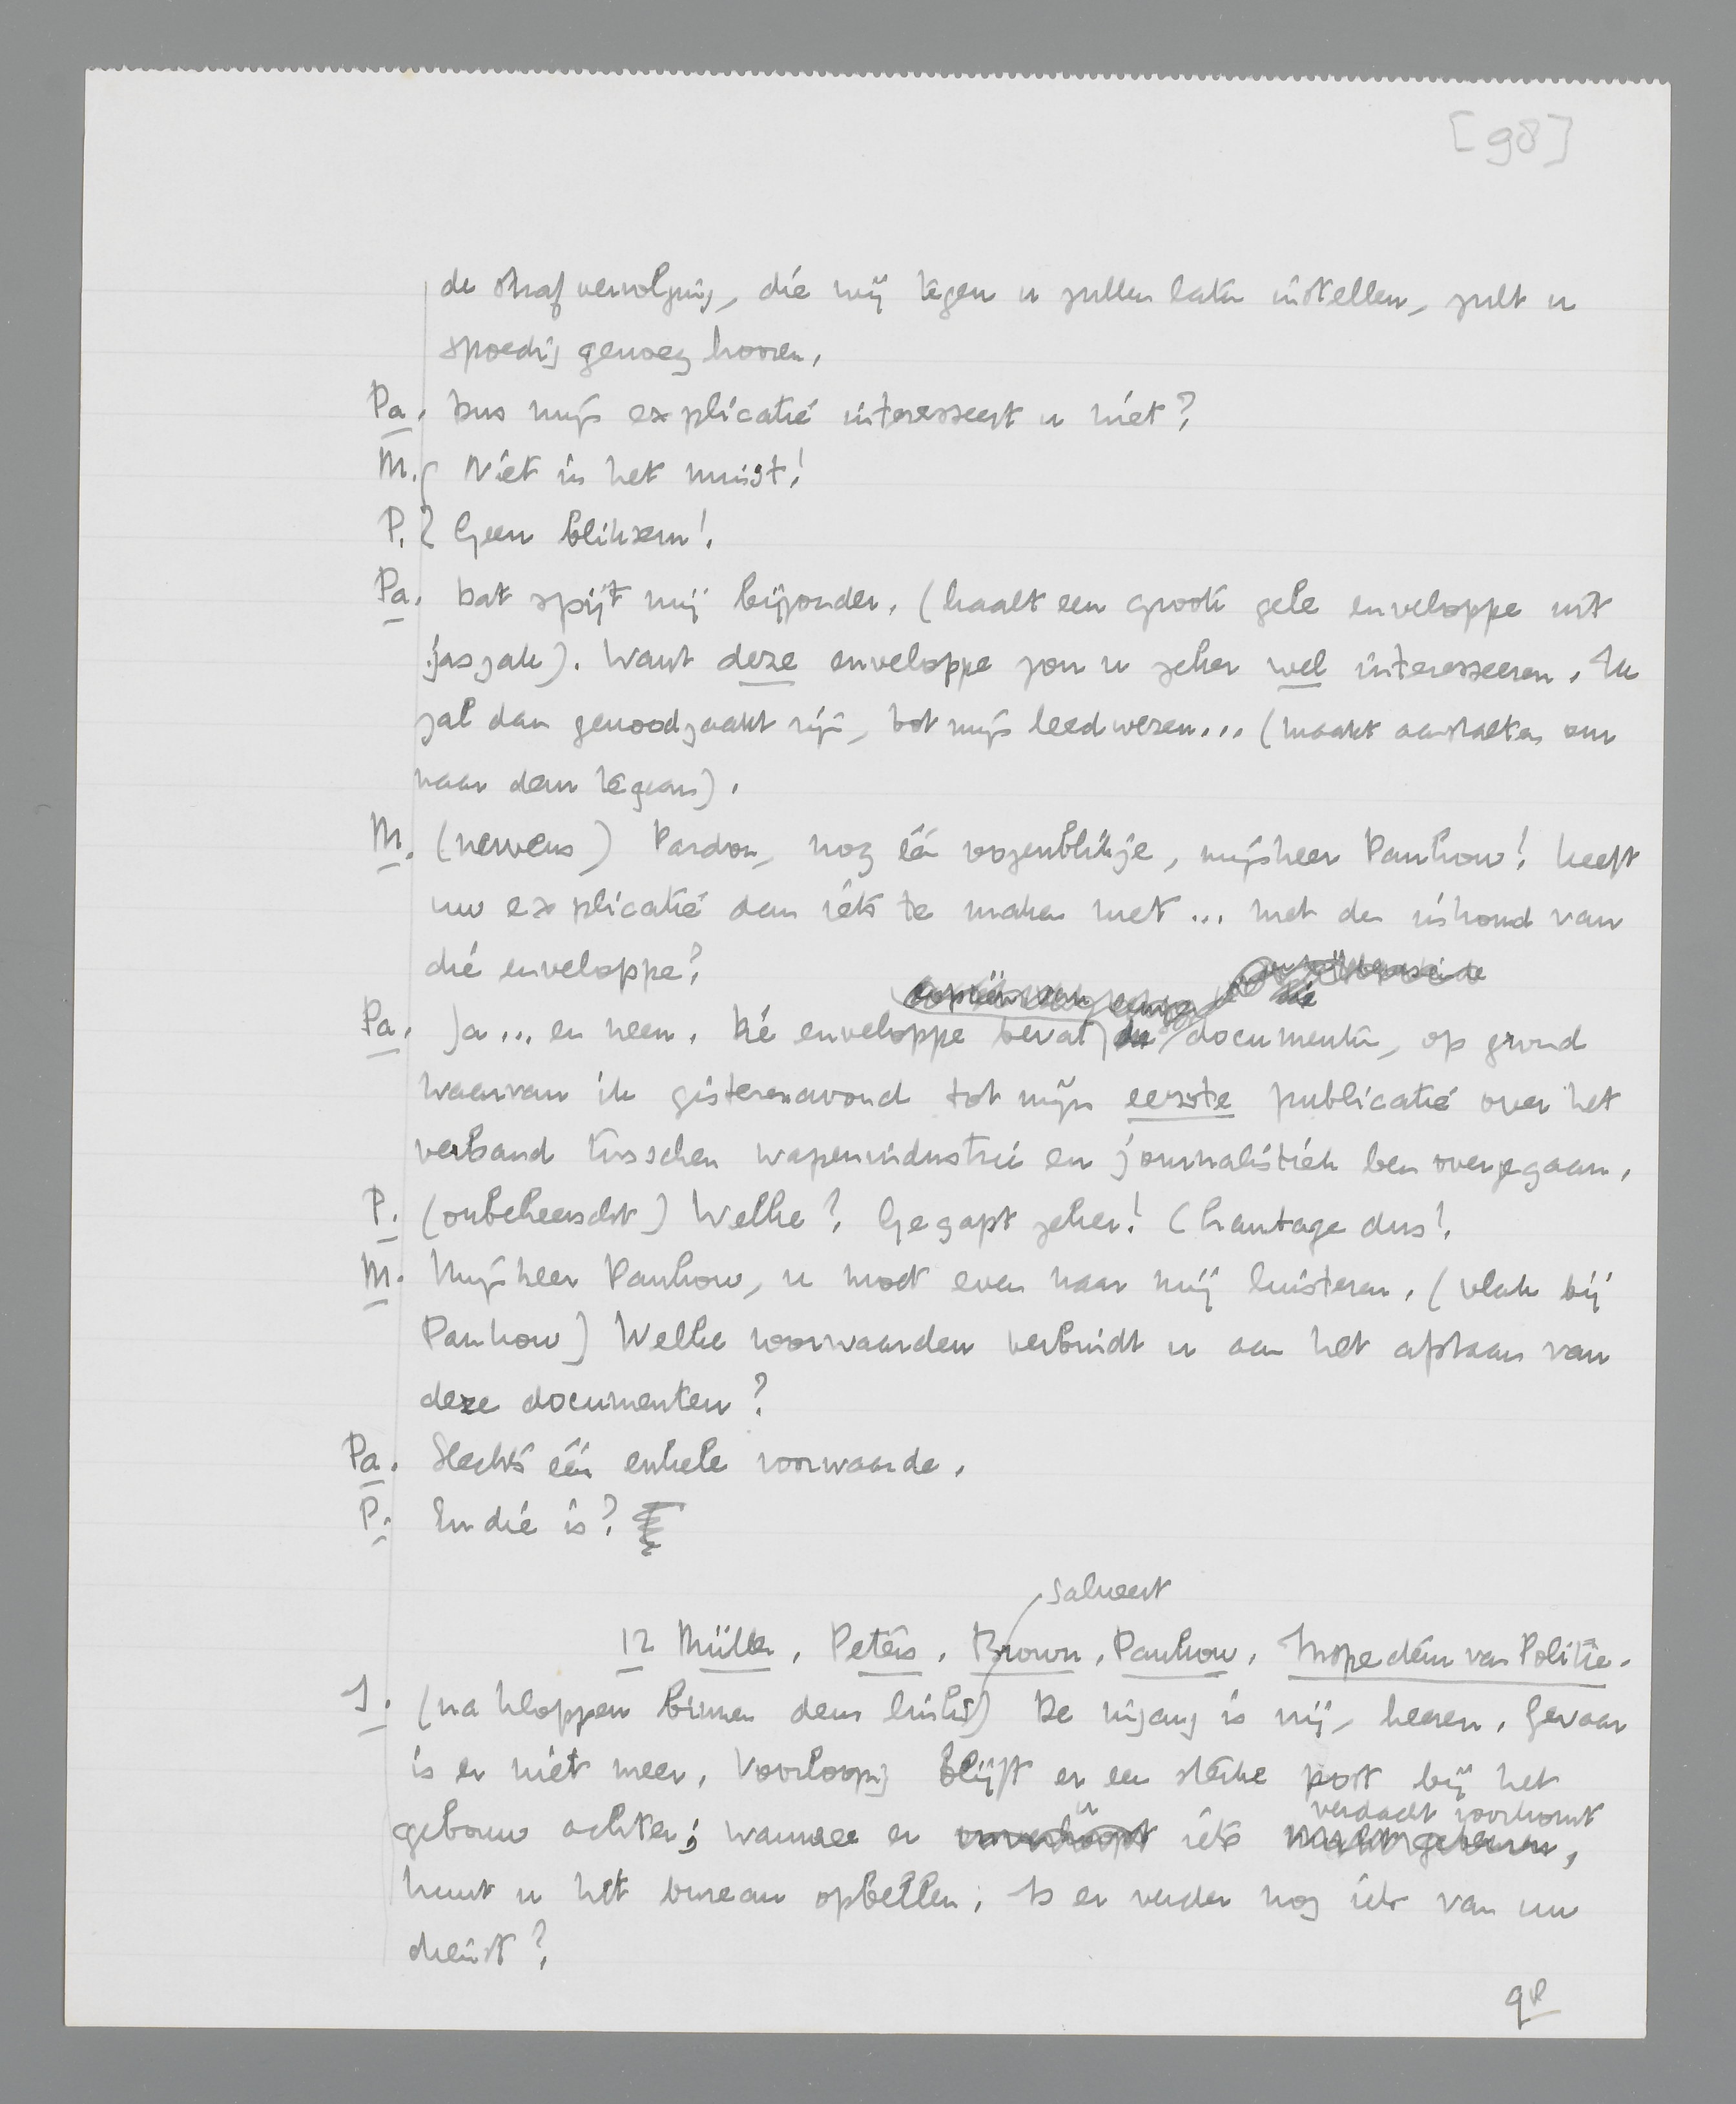 [98]
de strafvervolging, die wij tegen u zullen laten instellen, zult u
spoedig genoeg hooren.
Pa. Dus mijn explicatie interesseert u niet?
M. Niet in het minst!
P. Geen bliksem!
Pa. Dat spijt mij bijzonder. (haalt een groote gele enveloppe uit
jaszak). Want deze enveloppe zou u zeker wel interesseeren. Ik
zal dan genoodzaakt zijn, tot mijn leedwezen... (maakt aanstalten om
naar deur te gaan).
M. (nerveus) Pardon, nog één oogenblikje, mijnheer Pankow! Heeft
uw explicatie dan iets te maken met ... met den inhoud van
die enveloppe?
copieën van eenige die
Pa. Ja ... en neen. Die enveloppe bevat de documenten, op grond
waarvan ik gisterenavond tot mijn eerste publicatie over het
verband tusschen wapenindustrie en journalistiek ben overgegaan.
P. (onbeheerscht) Welke? Gegapt zeker! Chantage dus!
M. Mijnheer Pankow, u moet even naar mij luisteren. (vlak bij
Pankow) Welke voorwaarden verbindt u aan het afstaan van
deze documenten?
Pa. Slechts één enkele voorwaarde.
P. En die is?
salueert
12 Müller, Peters, Brown, Pankow, Inspecteur van Politie.
I. (na kloppen binnen deur links) De ingang is vrij, heeren. Gevaar
is er niet meer. Voorloopig blijft er een sterke post bij het
verdacht voorkomt
gebouw achter; wanneer er onverhoopt u iets mocht gebeuren,
kunt u het bureau opbellen. Is er verder nog iets van uw
dienst?
98